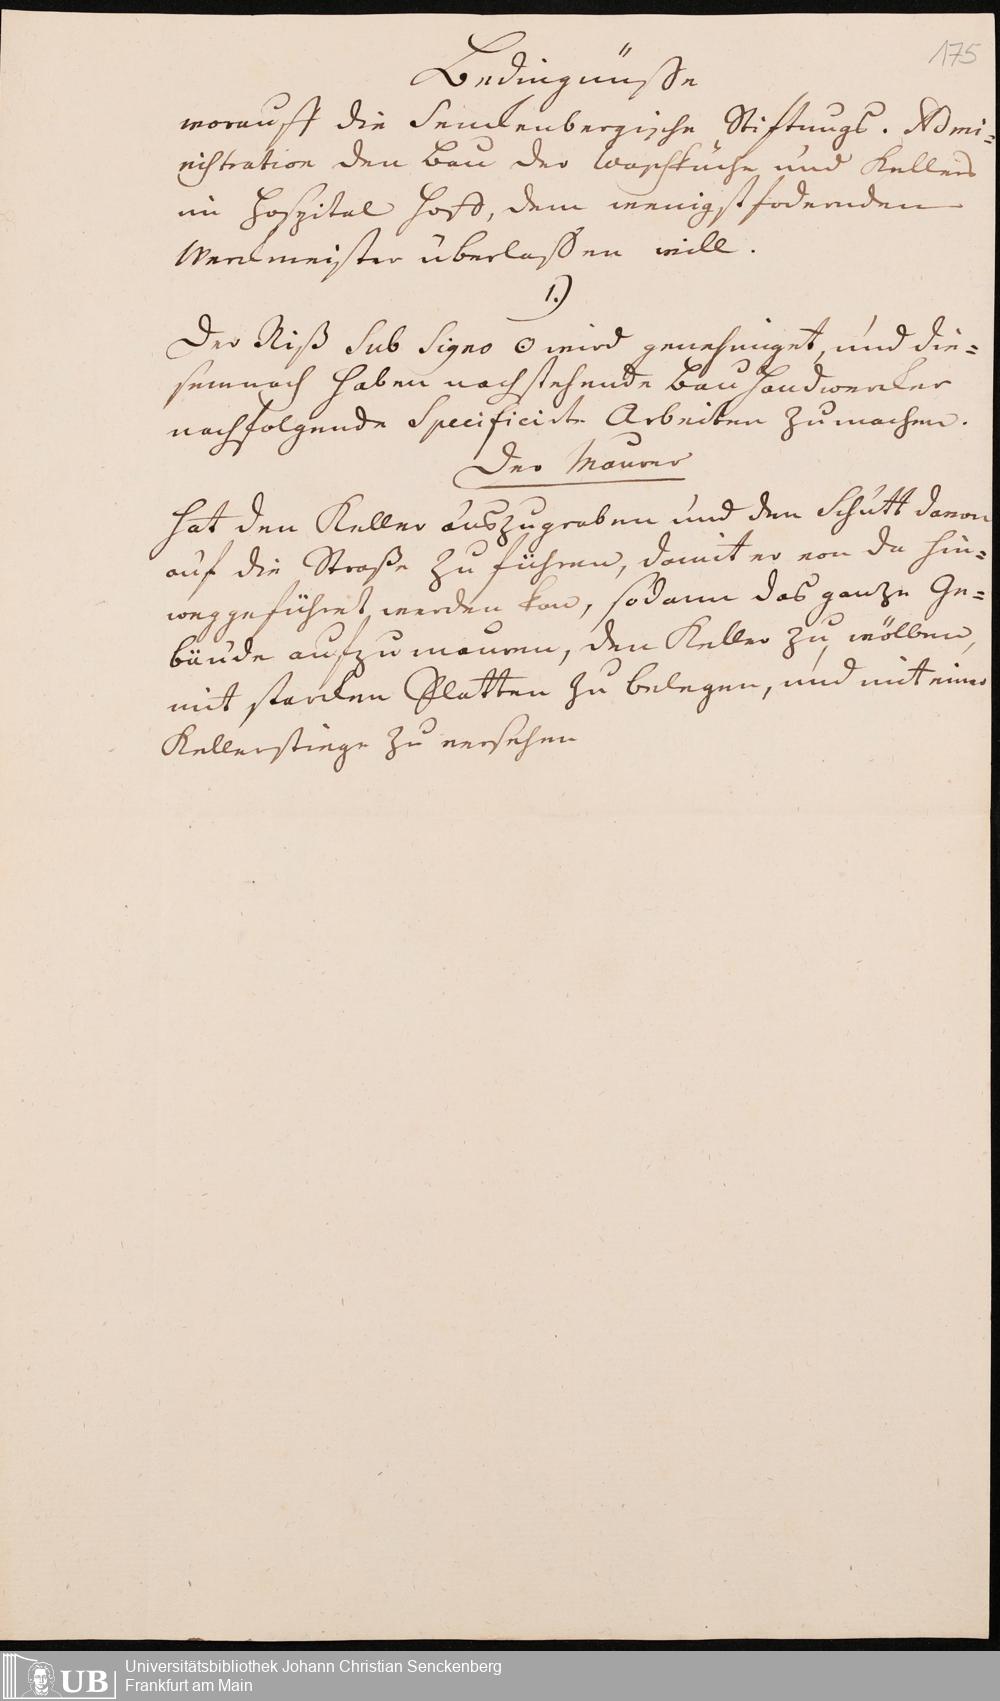 175
Bedingnüsse
worauff die Senckenbergische Stiftungs. Admi=
nistration den Bau der Waschküche und Kellers
im Hospital Hoff, dem wenigstfodernden
Werckmeister überlassen will.
1.)
Der Riß sub signo ⊙ wird genehmiget, und die=
semnach haben nachstehende Bau Handwercker
nachfolgende specificirte Arbeiten zu machen.
Der Maurer
hat den Keller auszugraben und den Schutt davon
auf die Straße zu führen, damit er von da hin=
weggeführet werden kan, sodann das ganze Ge=
bäude aufzumauren, den Keller zu wölben,
mit starcken Platten zu belegen, und mit einer
Kellerstiege zu versehen
UB
Universitätsbibliothek Johann Christian Senckenberg
Frankfurt am Main